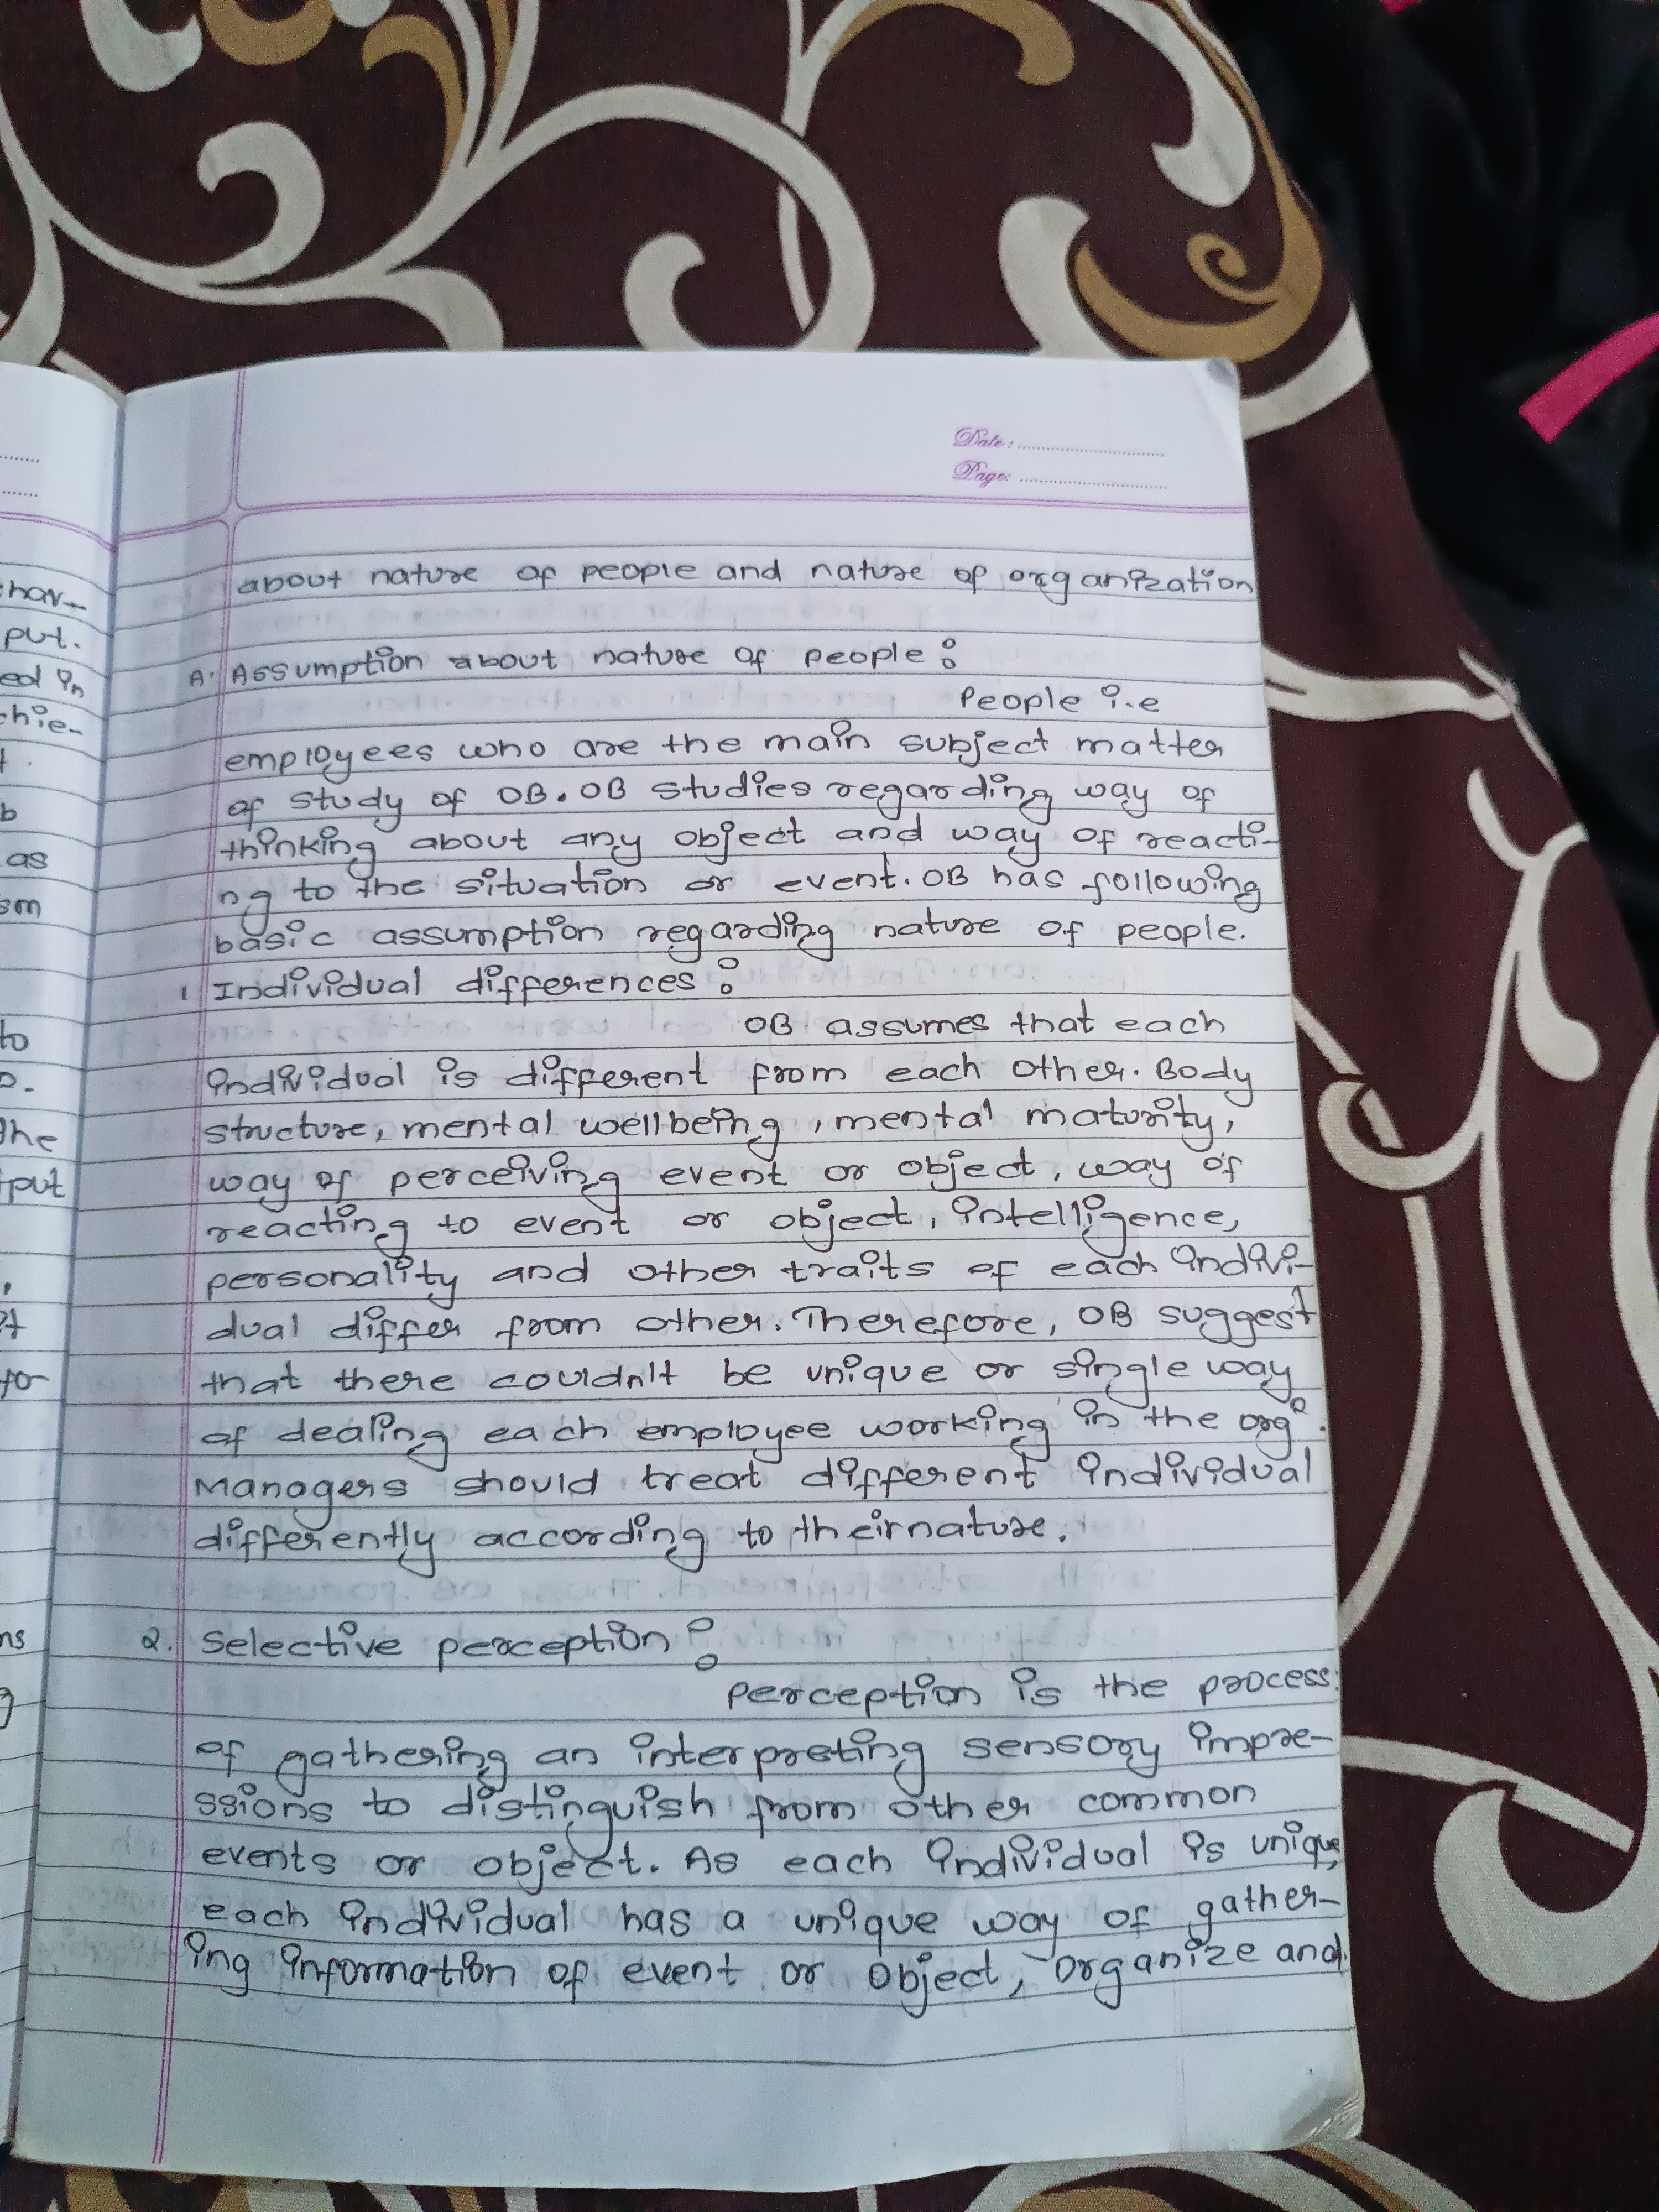 Date:
Page:
about nature of people and nature of organization
A. Assumption about nature of people:
People i.e
employees who are the main subject matter
of study of OB. OB studies regarding way of
thinking about any object and way of reacti-
ng to the situation or event. OB has following
basic assumption regarding nature of people.
1 Individual differences:
OB assumes that each
individual is different from each other. Body
structure, mental wellbeing, mental maturity,
way of perceiving event or object, way of
reacting to event or object, intelligence,
personality and other traits of each indivi-
dual differ from other. Therefore, OB suggest
that there couldn't be unique or single way
of dealing each employee working in the orgⁿ.
Managers should treat different individual
differently according to their nature.
2. Selective perception:
perception is the process
of gathering an interpreting sensory impre-
ssions to distinguish from other common
events or object. As each individual is unique,
each individual has a unique way of gather-
ing information of event or object, organize and
har-
put.
ed in
chie-
t.
b
as
sm
to
the
put
for
ns